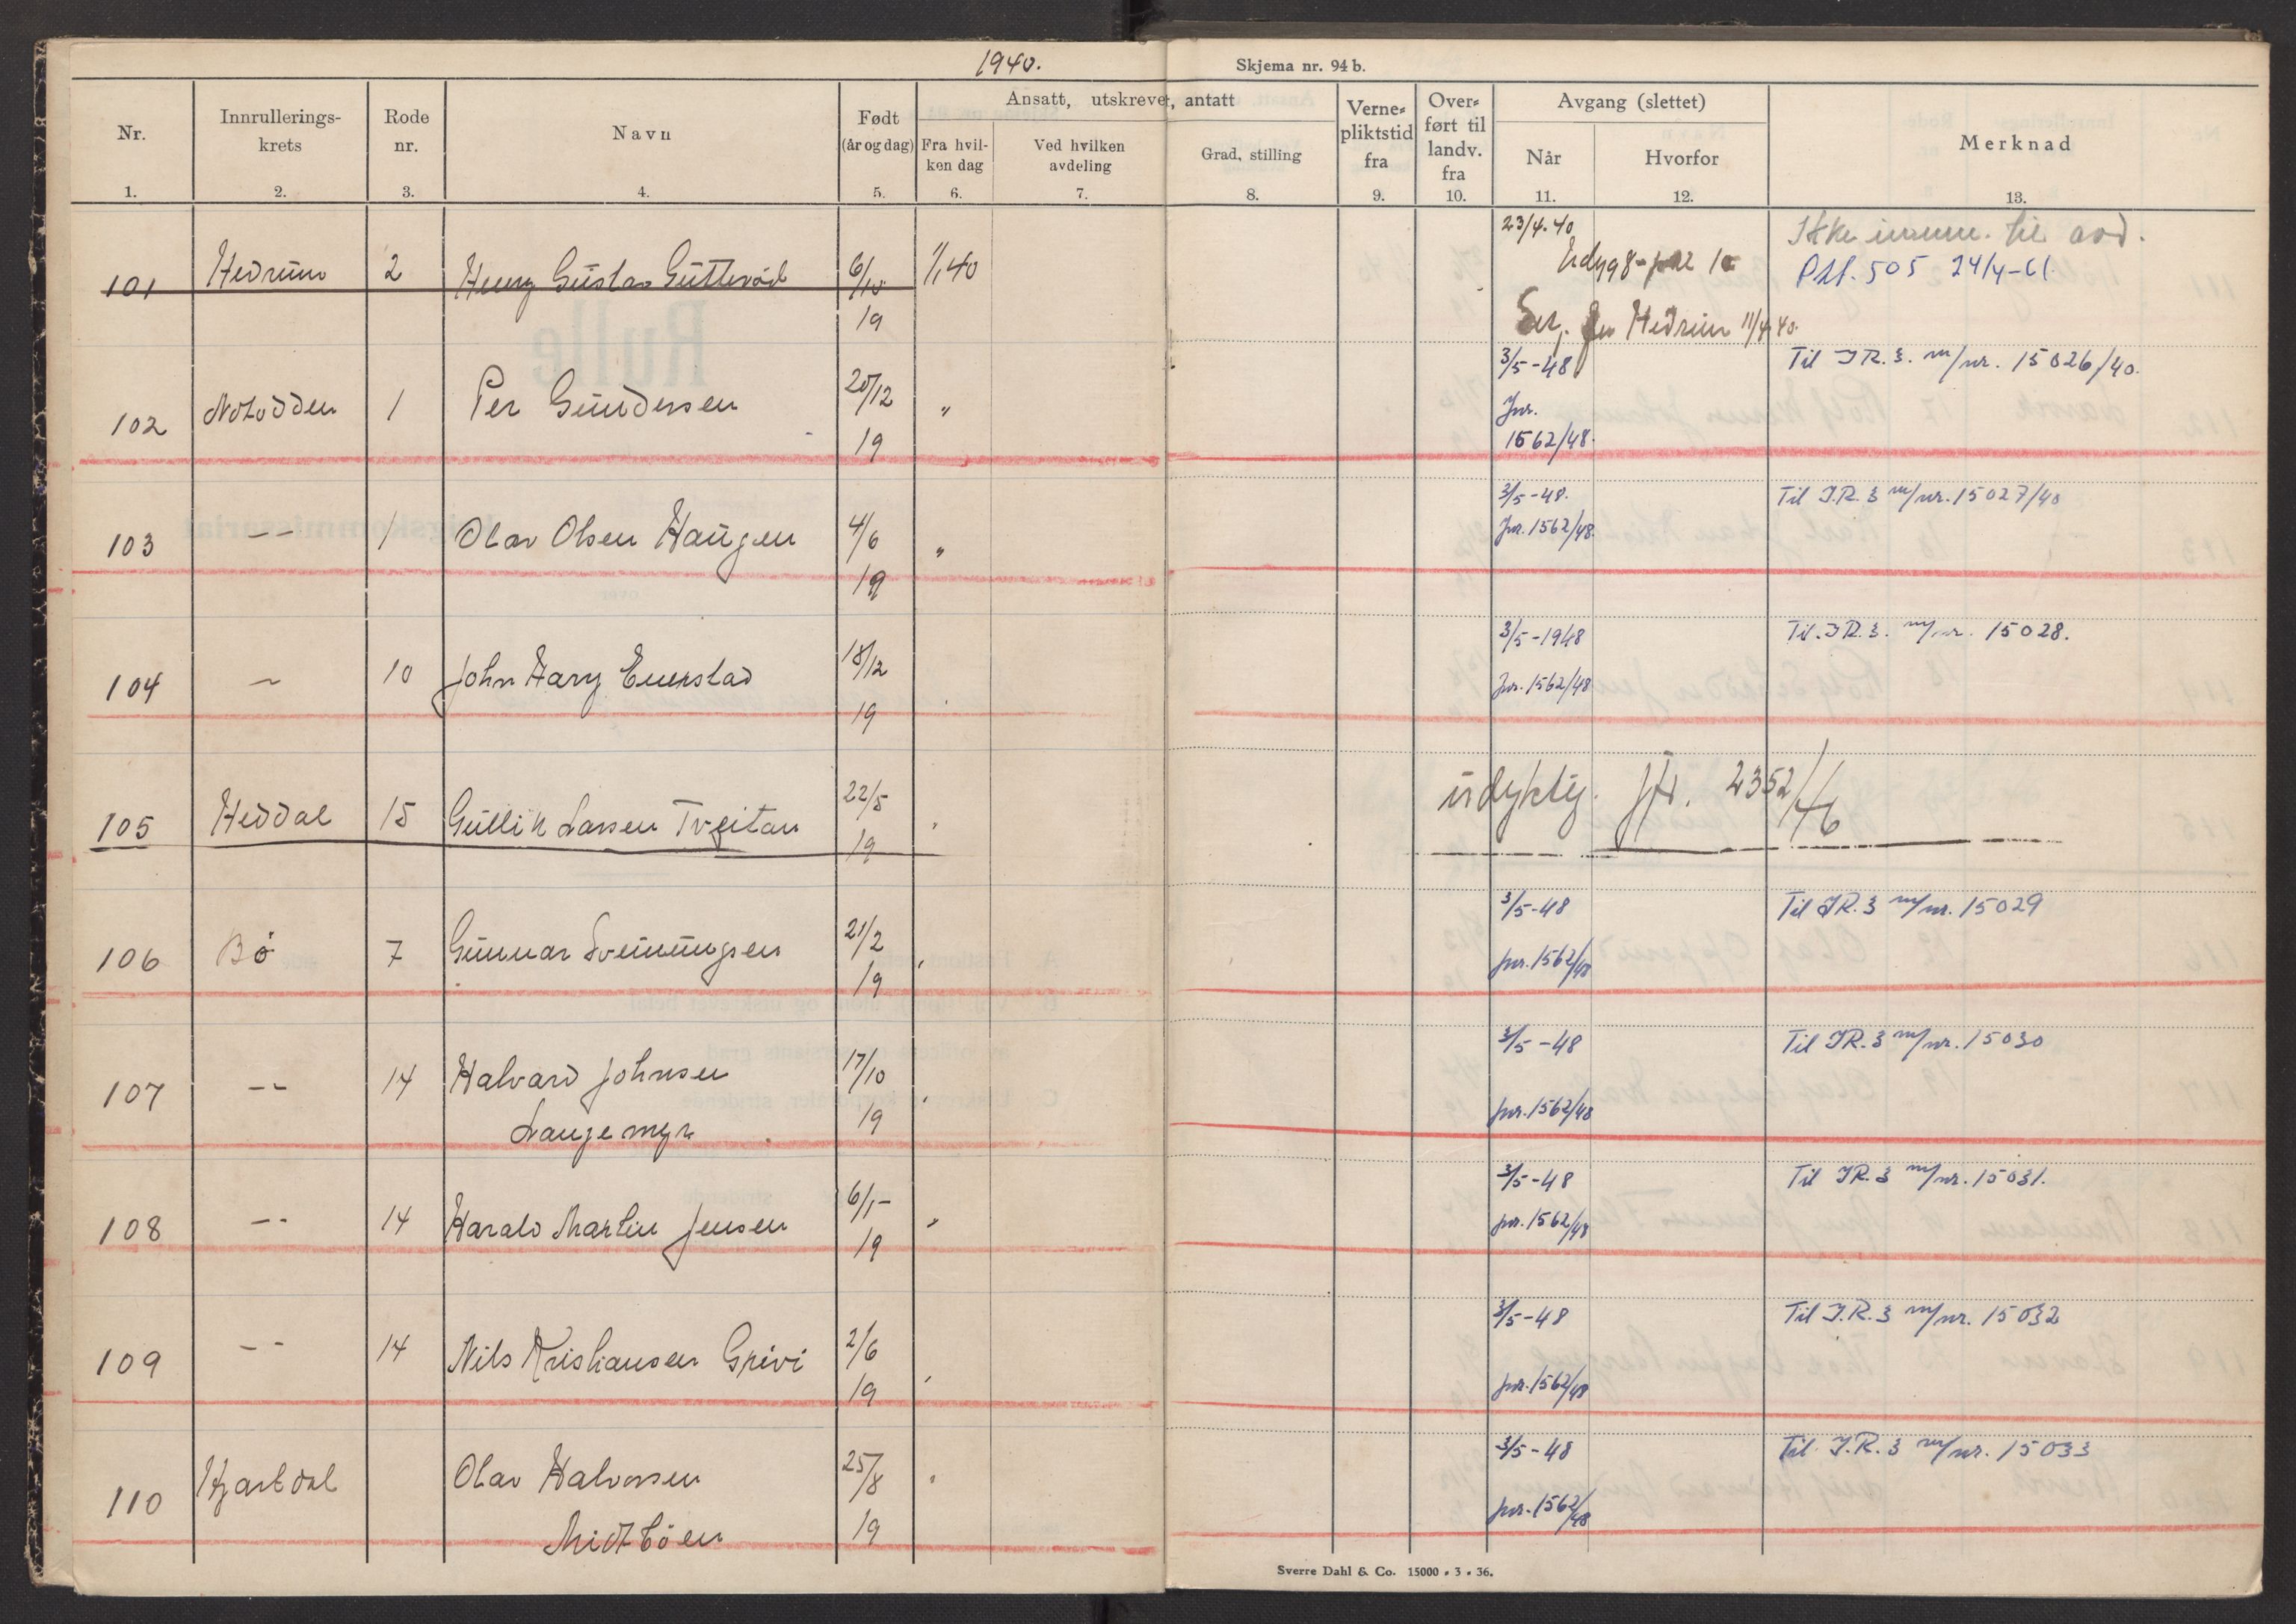 1940.
Skjema nr. 94 b.
Nr. Innrullerings-krets Rode nr. Navn Født (år og dag) Ansatt, utskrevet, antatt Fra hvil-ken dag Ved hvilken avdeling Grad, stilling Verne-pliktstid fra Over-ført til landv. fra Avgang (slettet) Når Hvorfor Merknad
1. 2. 3. 4. 5. 6. 7. 8. 9. 10. 11. 12. 13.
101 Hedrum 2 Henry Gustav 6/10 19 1/1 40 23/4.40 Hedrum 11/4 40. Ikke til avd.
Pkf. 505 24/4-61
102 Notodden 1 Per Gundersen 20/12 19 " 3/5-48 Jnr. 1562/48. Til I.R. 3. m/nr. 15026/40.
103 -- 1 Olav Olsen Haugen 4/6 19 " 3/5-48. Jnr. 1562/48. Til I.R. 3 m/nr. 15027/40
104 - 10 John Harry 18/12 19 3/5-1948 Jnr. 1562/48 Til I.R. 3. m/nr. 15028.
105 Heddal 15 Gullik Larsen Tveitan 22/5 19 " udyktig. 2352/46
106 Bø 7 Gunnar Sveinungsen 21/2 19 " 3/5-48 jnr. 1562/48 Til I.R. 3 m/nr. 15029
107 -- 14 Halvard Johnsen
Langemyr 17/10 19 " 3/5-48 jnr. 1562/48 Til I.R. 3 m/nr. 15030
108 -- 14 Harald Martin Jensen 6/1- 19 " 3/5-48 jnr. 1562/48 Til I.R. 3 m/nr. 15031.
109 -- 14 Nils Kristiansen Grivi 2/6 19 " 3/5-48 jnr. 1562/48 Til I.R. 3 m/nr. 15032
110 Hjartdal Olav Halvorsen
Midtbøen 25/8 19 " 3/5-48 jnr. 1562/48 Til I.R. 3 m/nr. 15033
Sverre Dahl & Co. 15000 - 3 - 36.